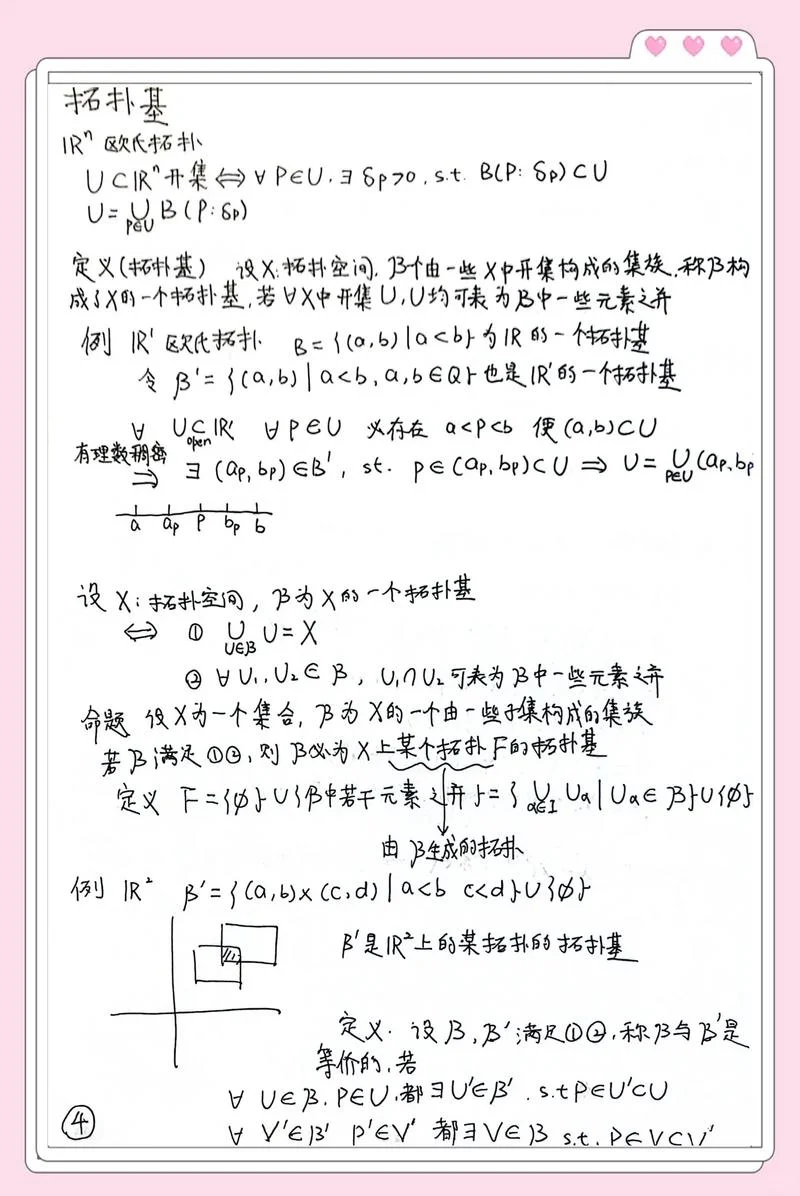 拓扑基
ℝⁿ 欧氏拓扑
U⊂ℝⁿ开集⇔∀P∈U.∃δp>0,s.t. B(P:δp)⊂U
U=∪_{P∈U} B(P:δp)
定义(拓扑基) 设X:拓扑空间,β个由一些X中开集构成的集族,称β构
成了X的一个拓扑基,若∀X中开集U,U均可表为β中一些元素之并
例 ℝ' 欧氏拓扑 B={(a,b)|a<b}为ℝ的一个拓扑基
令 β'={(a,b)|a<b,a,b∈Q}也是ℝ'的一个拓扑基
∀ U⊂_{open}ℝ' ∀P∈U 必存在 a<p<b 使(a,b)⊂U
有理数稠密 ⇒ ∃(ap,bp)∈B', st. p∈(ap,bp)⊂U ⇒ U=∪_{P∈U}(ap,bp
a ap p bp b
设 X:拓扑空间,β为X的一个拓扑基
⇔ ① ∪_{U∈β} U=X
② ∀U₁,U₂∈β, U₁∩U₂可表为β中一些元素之并
命题 设X为一个集合,β为X的一个由一些子集构成的集族
若β满足①②,则β必为X上某个拓扑F的拓扑基
定义 F={∅}∪{β中若干元素之并}={∪_{α∈I} Uα|Uα∈β}∪{∅}
由β生成的拓扑
例 ℝ² β'={(a,b)×(c,d)|a<b c<d}∪{∅}
β'是ℝ²上的某拓扑的拓扑基
定义. 设β,β'满足①②,称β与β'是
等价的,若
∀ U∈β,P∈U,都∃U'∈β'.s.t P∈U'⊂U
④
∀ V'∈β' p'∈V' 都∃V∈β s.t. P∈V⊂V'